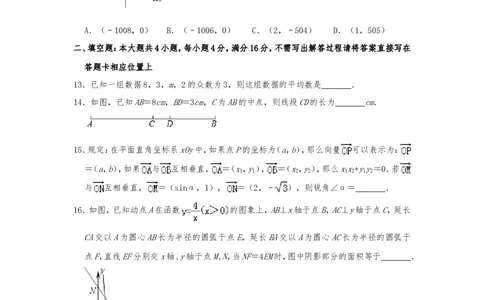 A．(﹣1008，0)   B．(﹣1006，0)   C．(2，﹣504)   D．(1，505)
二、填空题：本大题共4小题，每小题4分，满分16分，不需写出解答过程请将答案直接写在
答题卡相应位置上
13．已知一组数据8，3，m，2的众数为3，则这组数据的平均数是       ．
14．如图，已知AB＝8cm，BD＝3cm，C为AB的中点，则线段CD的长为       cm．
A C D B
15．规定：在平面直角坐标系xOy中，如果点P的坐标为(a，b)，那么向量OP可以表示为：OP
＝(a，b)，如果OA与OB互相垂直，OA＝(x₁，y₁)，OB＝(x₂，y₂)，那么x₁x₂+y₁y₂＝0．若OM
与ON互相垂直，OM＝(sinα，1)，ON＝(2，﹣√3)，则锐角∠α＝       ．
16．如图，已知动点A在函数y=4/x(x＞0)的图象上，AB⊥x轴于点B，AC⊥y轴于点C，延长
CA交以A为圆心AB长为半径的圆弧于点E，延长BA交以A为圆心AC长为半径的圆弧于
点F，直线EF分别交x轴、y轴于点M、N，当NF＝4EM时，图中阴影部分的面积等于       ．
y
N